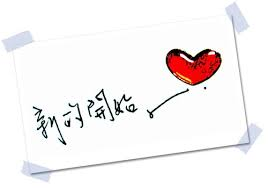 新的開始